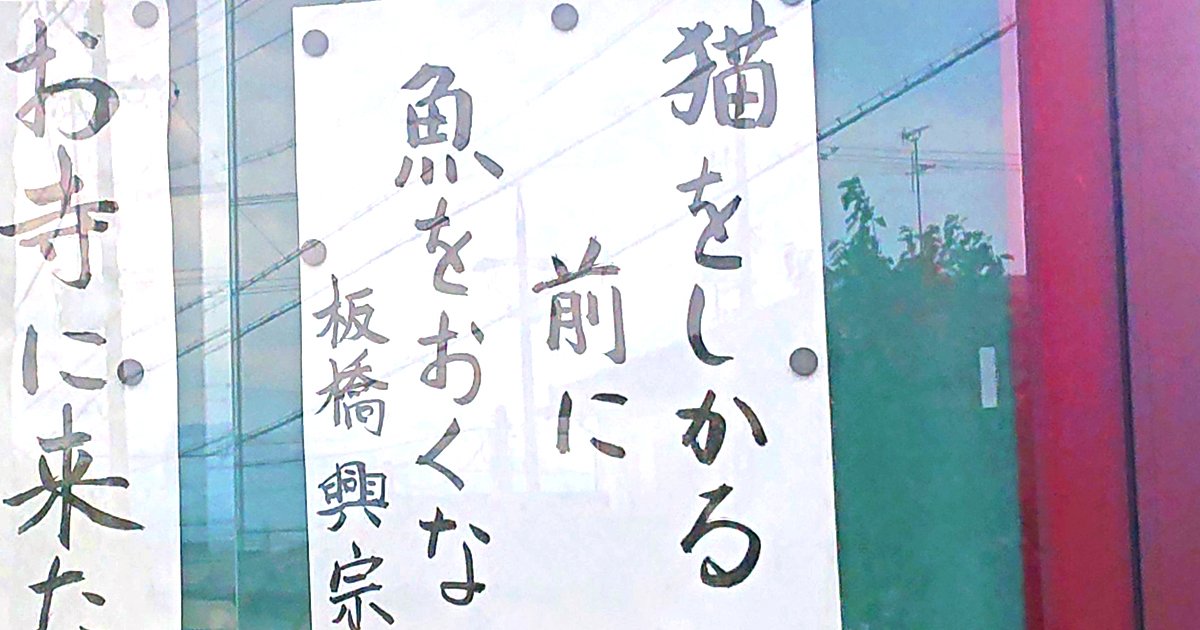 猫をしかる
前に
魚をおくな
板橋 興宗
お寺に来た